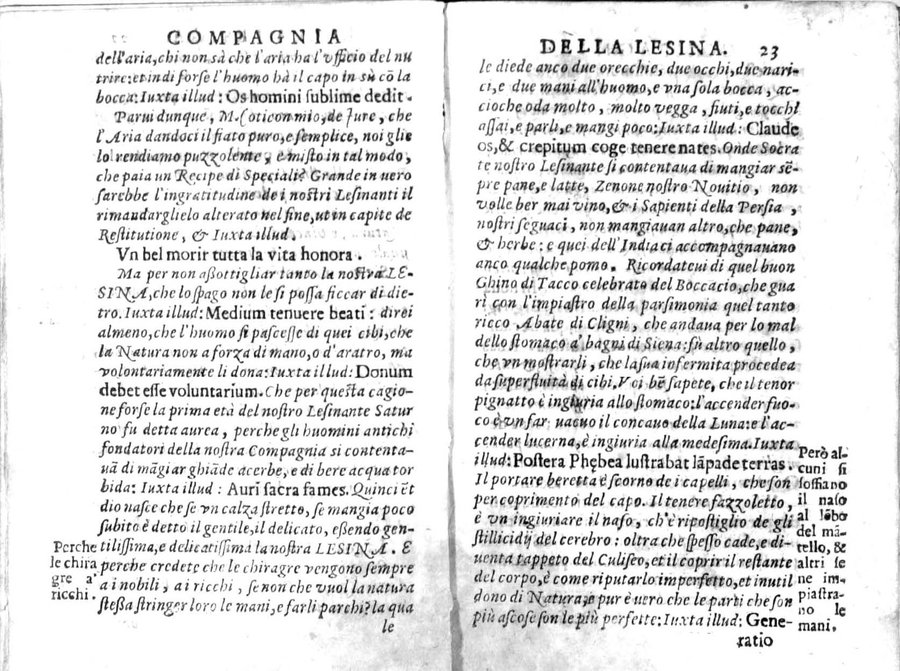 COMPAGNIA
dell'aria, chi non sà che l'aria ha l'vfficio del nu
trire: et indi forse l'huomo hà il capo in sù cō la
bocca: Iuxta illud: Os homini sublime dedit.
Parui dunque, M. Coticon mio, de Iure, che
l'Aria dandoci il fiato puro, e semplice, noi glie
lo rendiamo puzzolente, e misto in tal modo,
che paia vn Recipe di Specialì Grande in uero
sarebbe l'ingratitudine de i nostri Lesinanti il
rimandarglielo alterato nel fine, ut in capite de
Restitutione, & Iuxta illud.
Vn bel morir tutta la vita honora.
Ma per non aßottigliar tanto la nostra LE-
SINA, che lo spago non le si possa ficcar di die-
tro. Iuxta illud: Medium tenuere beati: direi
almeno, che l'huomo si pascesse di quei cibi, che
la Natura non a forza di mano, o d'aratro, ma
volontariamente li dona: Iuxta illud: Donum
debet esse voluntarium. Che per questa cagio-
ne forse la prima età del nostro Lesinante Satur
no fu detta aurea, perche gli huomini antichi
fondatori della nostra Compagnia si contenta-
uā di māgiar ghiāde acerbe, e di bere acqua tor
bida: Iuxta illud: Auri sacra fames. Quinci ēt
dio nasce che se vn calza stretto, se mangia poco
subito è detto il gentile, il delicato, eßendo gen-
tilissima, e delicatissima la nostra LESINA. E
perche credete che le chiragre vengono sempre
a i nobili, a i ricchi, se non che vuol la natura
steßa stringer loro le mani, e farli parchi? la qua
le
Perche
le chira
gre a'
ricchi.
DELLA LESINA. 23
le diede anco due orecchie, due occhi, due nari-
ci, e due mani all'huomo, e vna sola bocca, ac-
cioche oda molto, molto vegga, fiuti, e tocchi
assai, e parli, e mangi poco: Iuxta illud: Claude
os, & crepitum coge tenere nates. Onde Socra
te nostro Lesinante si contentaua di mangiar sē-
pre pane, e latte, Zenone nostro Nouitio, non
volle ber mai vino, & i Sapienti della Persia,
nostri seguaci, non mangiauan altro, che pane,
& herbe: e quei dell'India ci accompagnauano
anco qualche pomo. Ricordateui di quel buon
Ghino di Tacco celebrato del Boccacio, che gua
rì con l'impiastro della parsimonia quel tanto
ricco Abate di Cligni, che andaua per lo mal
dello stomaco a' bagni di Siena: fù altro quello,
che vn mostrarli, che la sua infermita procedea
da superfluità di cibi. Voi bē sapete, che il tenor
pignatto è ingiuria allo stomaco: l'accender fuo-
co è vn far uacuo il concauo della Luna: e l'ac-
cender lucerna, è ingiuria alla medesima. Iuxta
illud: Postera Phębea lustrabat lāpade terras.
Il portare beretta è scorno de i capelli, che son
per coprimento del capo. Il tenere fazzoletto,
è vn ingiuriare il naso, ch'è ripostiglio de gli
stillicidij del cerebro: oltra che spesso cade, e di-
uenta tappeto del Culiseo, et il coprir il restante
del corpo, è come riputarlo imperfetto, et inutil
dono di Natura, e pur è uero che le parti che son
più ascose son le più perfette: Iuxta illud: Gene-
ratio
Però al-
cuni si
soffiano
il naso
al lēbo
del mā-
tello, &
altri se
ne im-
piastra-
no le
mani.